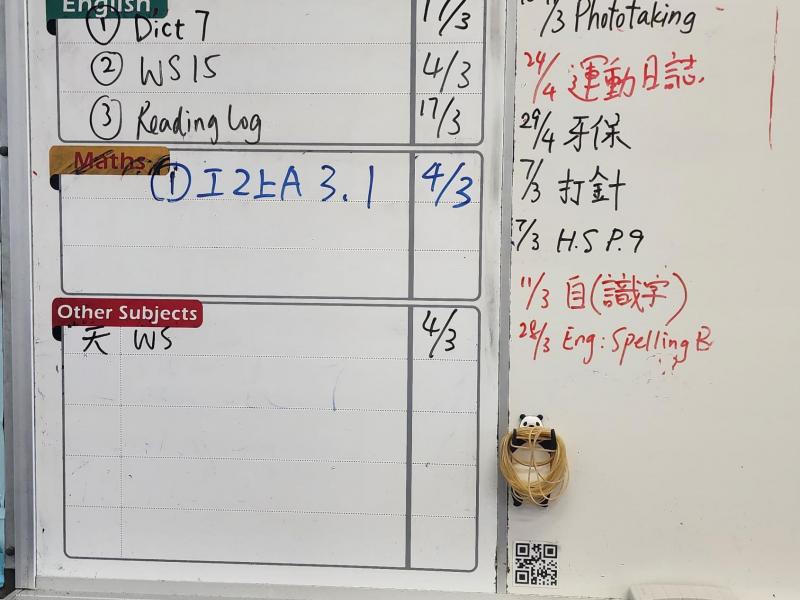 English
① Dict 7 17/3
② WS 15 4/3
③ Reading Log 17/3
Maths
① I2上A 3.1 4/3
Other Subjects
天 WS 4/3
/3 Phototaking
24/4 運動日誌
29/4 牙保
7/3 打針
7/3 H.S P.9
11/3 自(識字)
28/3 Eng: Spelling B